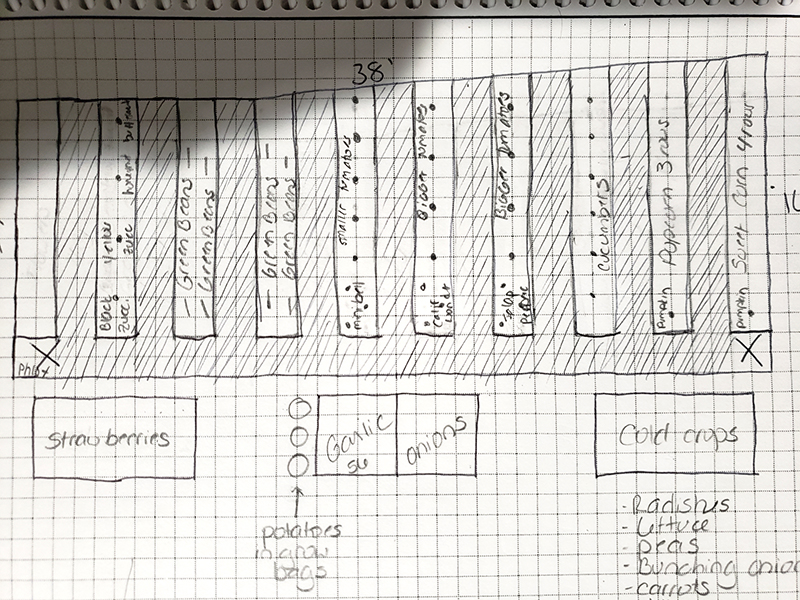 38'
Black
Zucc.
Yellow
Zucc
honeynut butternut
— Green Beans —
— Green Beans —
— Green Beans —
— Green Beans —
smaller tomatoes
Bigger tomatoes
Calif
Bigger tomatoes
cucumbers
Pumpkin
Popcorn 3 rows
Pumpkin
Sweet Corn 4 rows
Phlox
Strawberries
Garlic
56
onions
Cold crops
potatoes
in grow
bags
- Radishes
- lettuce
- peas
- Bunching onio
- carrots